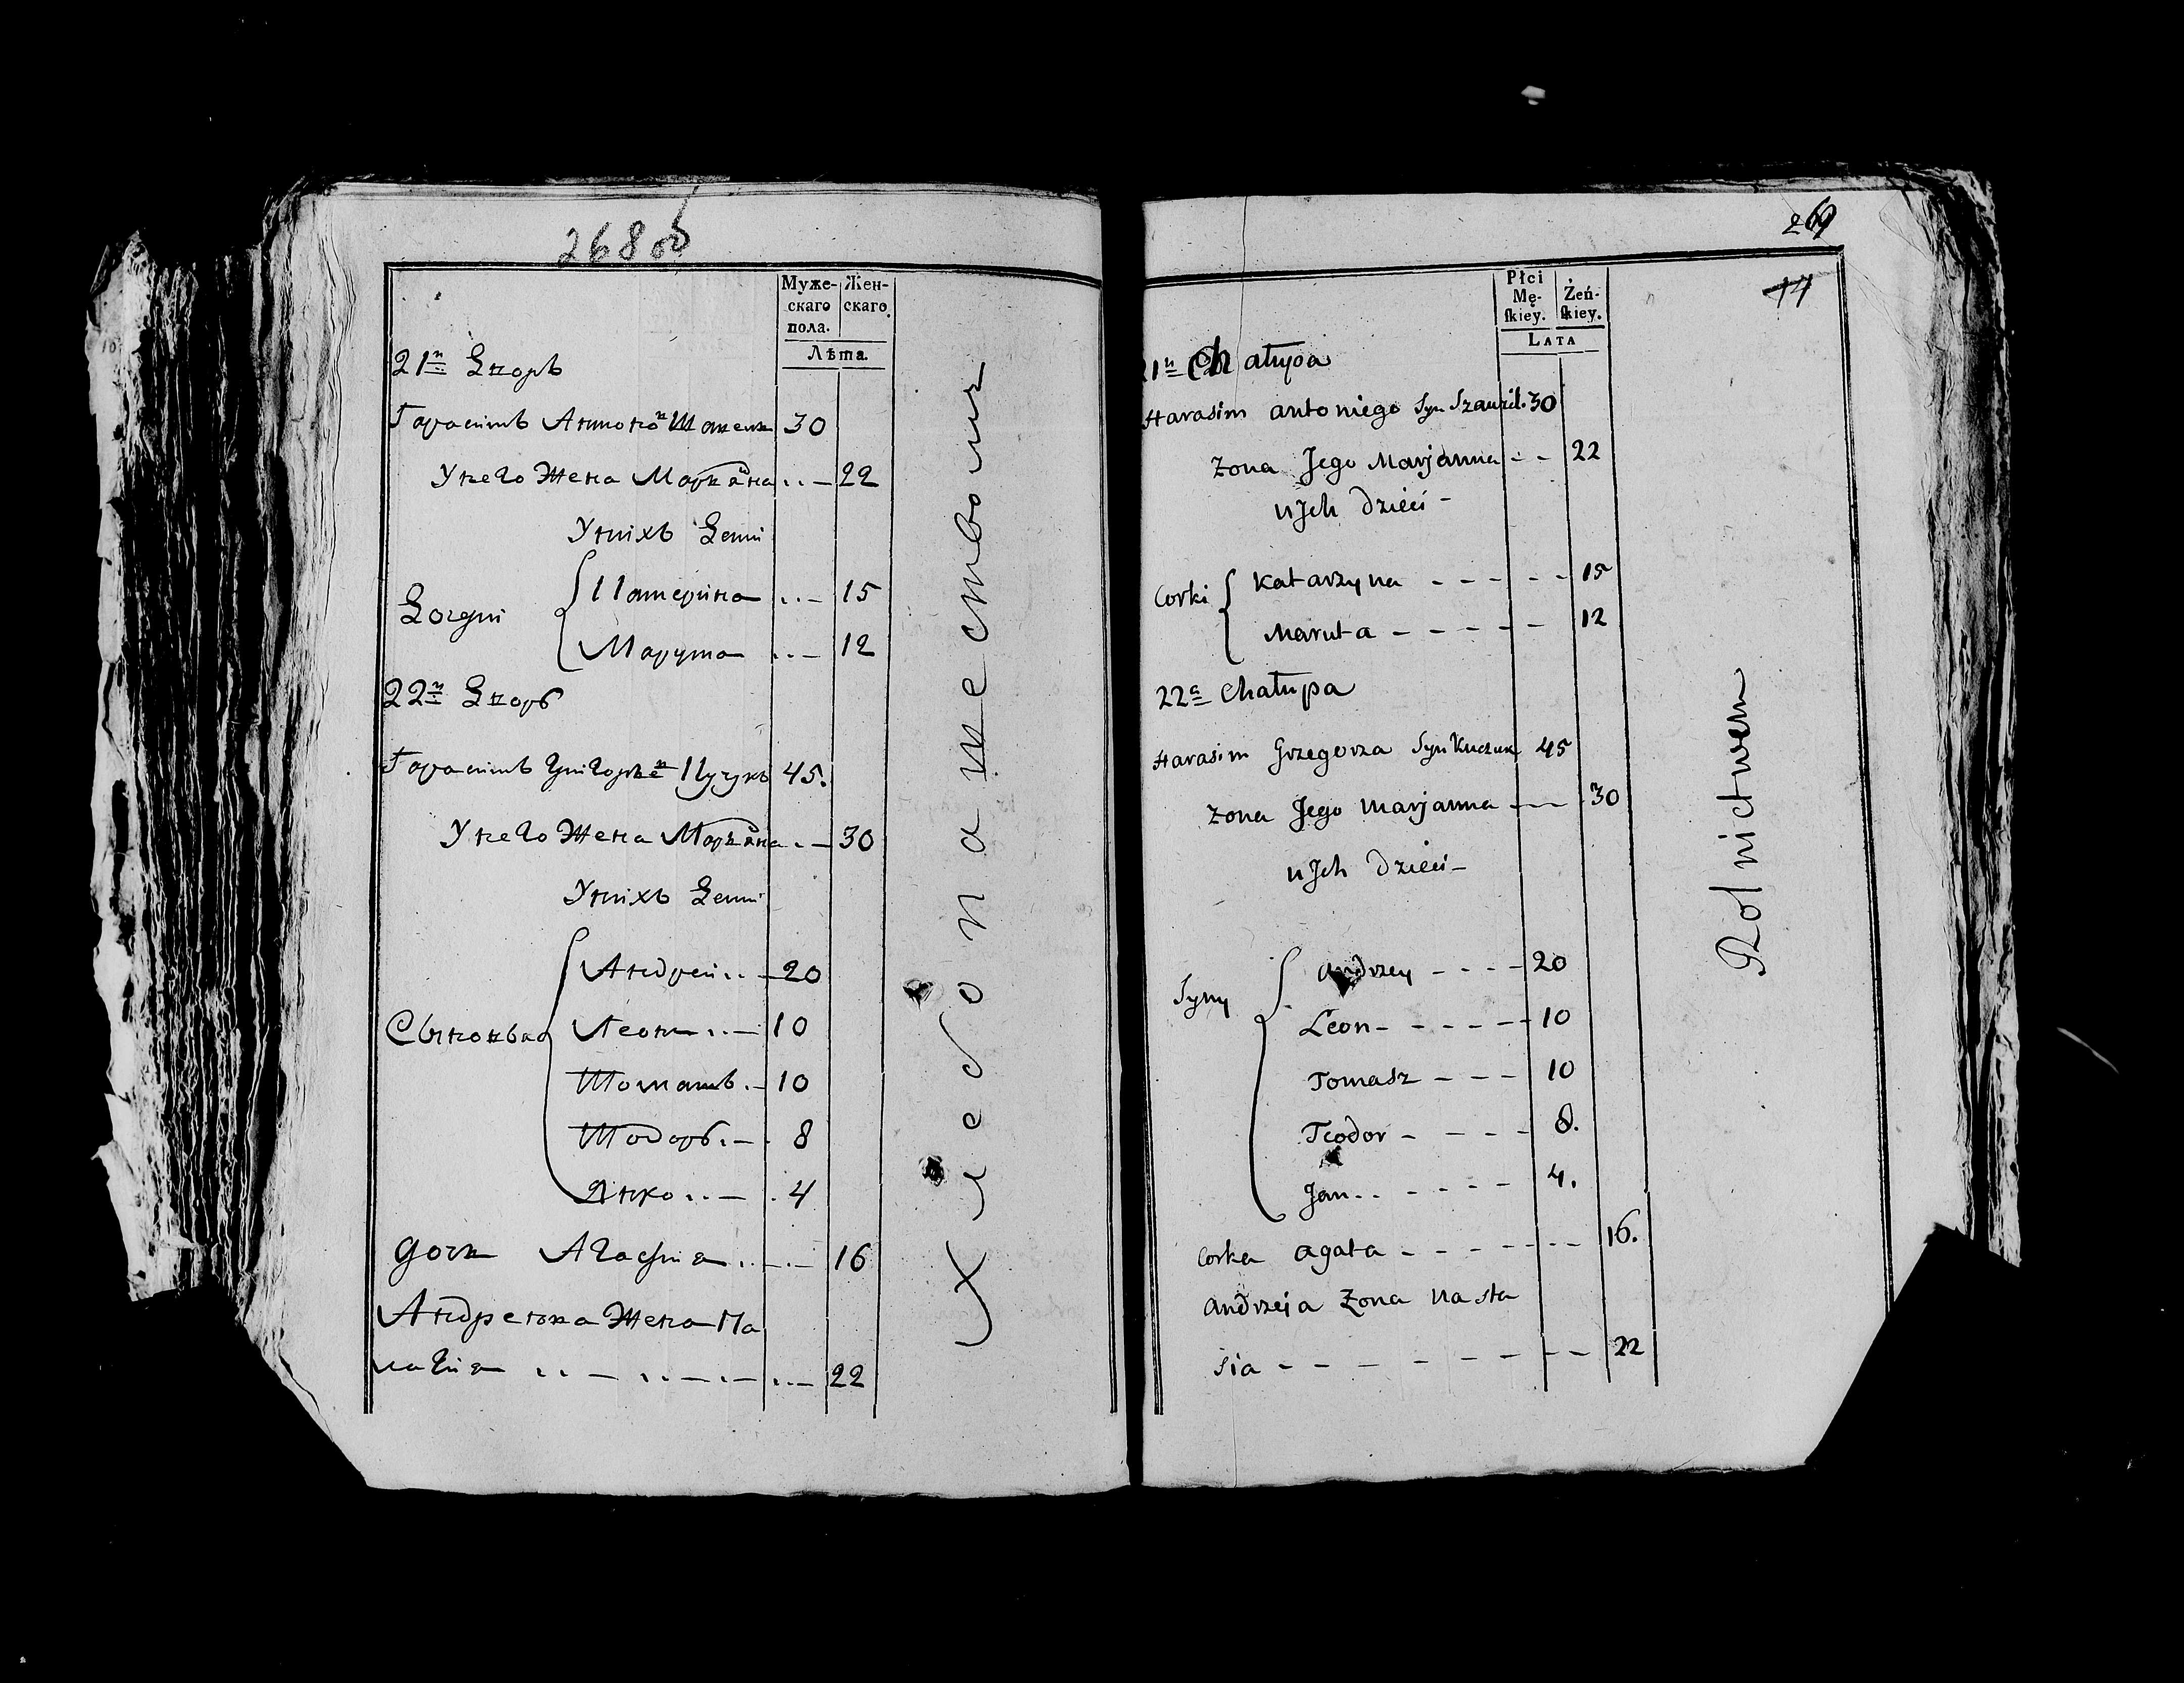 268 об
Муже-
скаго
пола.
Жен-
скаго.
Лѣта
21й Дворъ
Гарасимъ Антоно
30
У него жена Марияна .. — 22
У нихъ Дети
Дочери
Катерина ... — 15
Марута ... — 12
22й Дворъ
Гарасимъ Григорье Куцукъ 45.
У него жена Марияна . — 30
У нихъ Дети
Сыновья
Андреи .. — 20
Леонъ .. — 10
Томашъ . — 10
Тодоръ . — . 8
Янко .. — . 4
дочь Агафия .. — . — 16
Андреюва жена На
22
Хлебопашествомъ
269
14
Płci
Mę-
ſkiey.
Żeń-
ſkiey.
Lata
21a Chałupa
Harasim Antoniego Syn 30
Zona Jego Marjanna - - 22
u Jch Dzieci -
Corki
Katarzyna - - - - - 15
Maruta - - - - - - 12
22a Chałupa
Harasim Grzegorza Syn Kuczuk 45
Zona Jego Marjanna - - 30
u Jch Dzieci -
Syny
Andrzey - - - - 20
Leon - - - - - - 10
Tomasz - - - 10
Teodor - - - - 8.
Jan .. - - - - 4.
Corka Agata - - - - - - - 16.
Andrzeja Zona Nasta
sia - - - - - - - - - 22
Rolnictwem